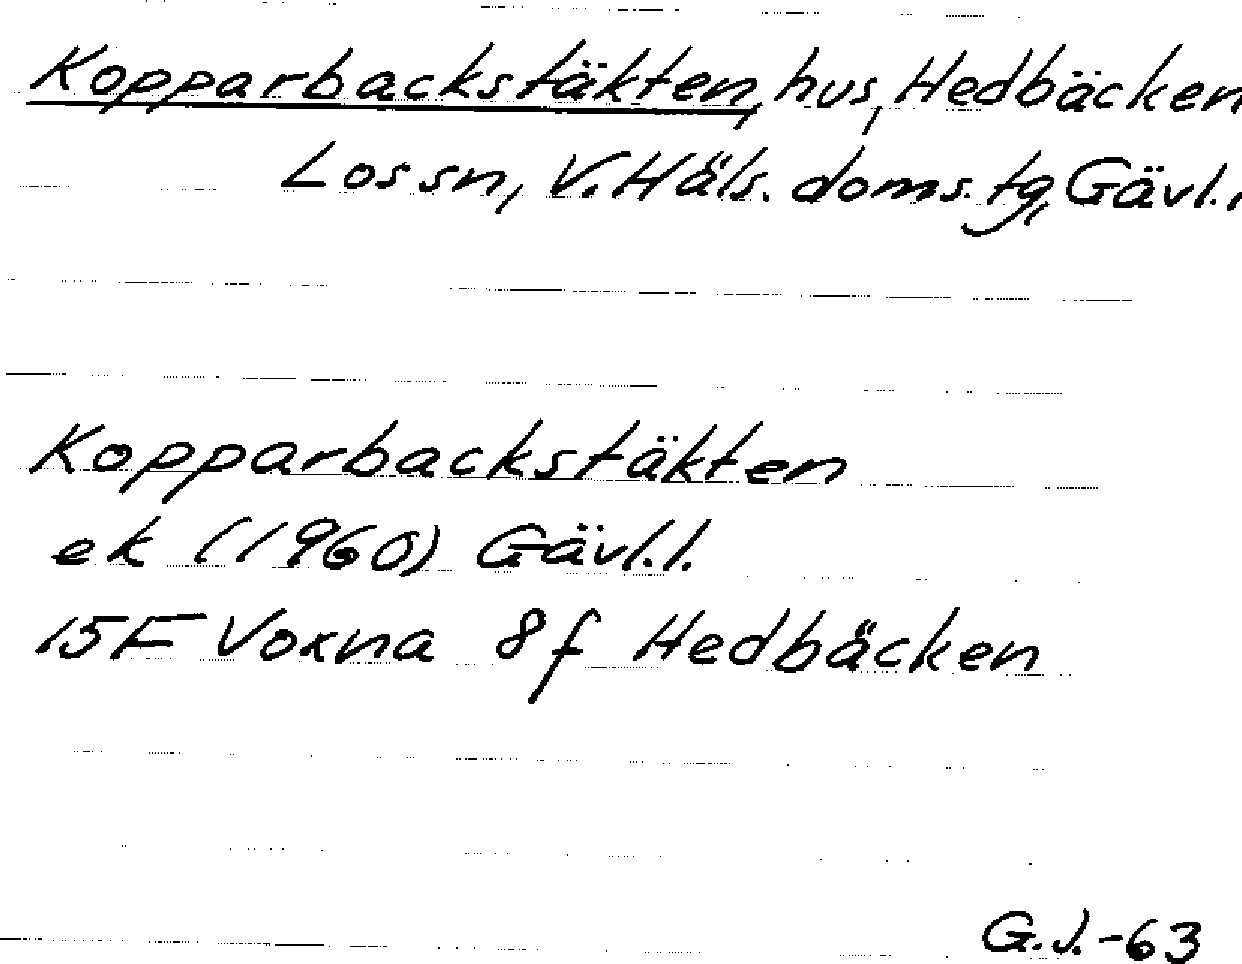 Kopparbackstäkten, hus, Hedbäcken
Los sn, V. Häls. doms. tg, Gävl. l
Kopparbackstäkten
ek (1960) Gävl. l.
15F Voxna 8f Hedbäcken
G.J.-63